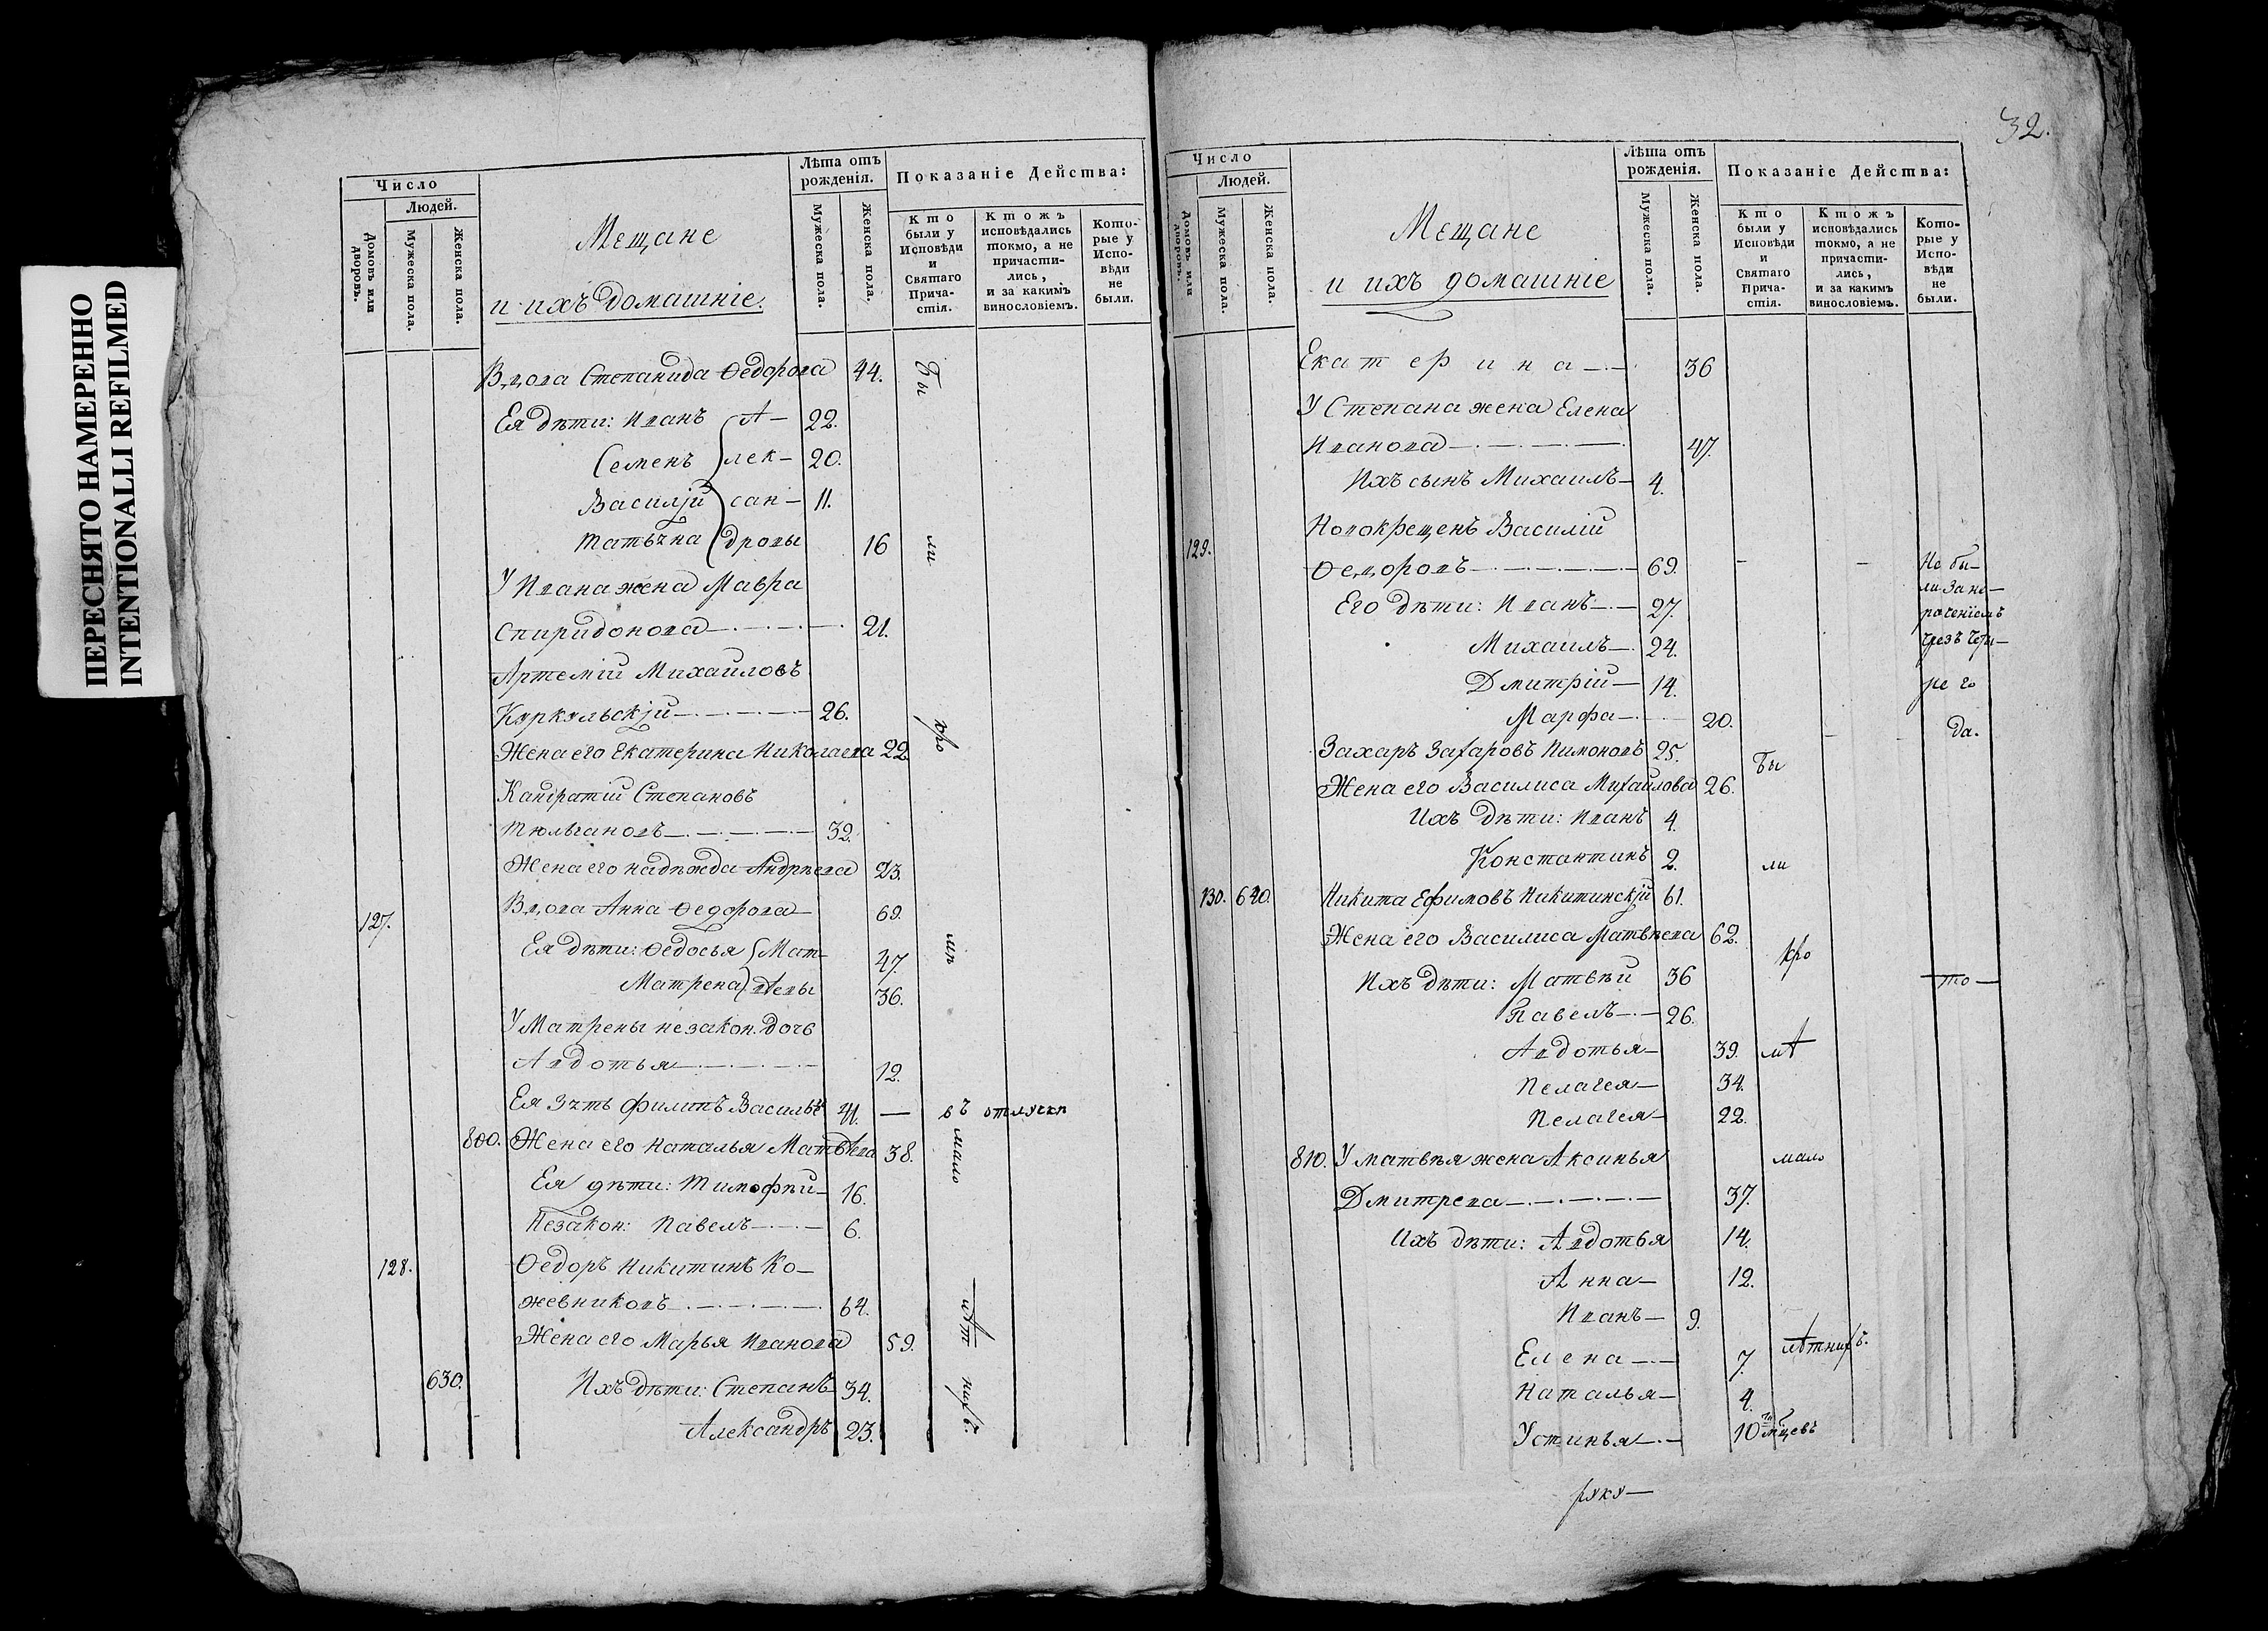 ПЕРЕСНЯТО НАМЕРЕННО
INTENTIONALLI REFILMED
Число
Людей.
Домовъ или дворовъ.
Мужеска пола.
Женска пола.
Мещане
и ихъ домашніе.
Лѣта отъ рожденія.
Мужеска пола.
Женска пола.
Показаніе Действа:
Кто были у Исповѣди и Святаго Прича-стія.
Ктожъ исповѣдались токмо, а не причасти-лись, и за какимъ винословіемъ.
Кото-рые у Испо-вѣди не были.
Вдова Степанида Ѳедорова 44. Бы
Ея дѣти: Иванъ А- 22.
Семенъ лек- 20.
Василій сан- 11.
Татьяна дровы 16 ли
У Ивана жена Мавра
Спиридонова 21.
Артемій Михайловъ
Куркульскій 26. кро
Жена его Екатерина Николаева 22.
Кандратій Степановъ
Тюльгановъ 32.
Жена его Надѣжда Андрѣева 23.
127. Вдова Анна Ѳедорова 69.
Ея дѣти: Ѳедосья Мат- 47.
Матрена вѣевы 36.
У Матрены незакон. дочь
Авдотья 12.
Ея зять Филипъ Васильевъ 41. — въ отлучкѣ
800. Жена его Наталья Матвѣева 38. мало
Ея дѣти: Тимофѣй 16.
Незакон: Павелъ 6.
128. Ѳедоръ Никитинъ Ко-
жевниковъ 64. лѣт
Жена его Марья Иванова 59.
630. Ихъ дѣти: Степанъ 34. нихъ.
Александръ 23.
32.
Число
Людей.
Домовъ или дворовъ.
Мужеска пола.
Женска пола.
Мещане
и ихъ домашніе
Лѣта отъ рожденія.
Мужеска пола.
Женска пола.
Показаніе Действа:
Кто были у Исповѣди и Святаго Прича-стія.
Ктожъ исповѣдались токмо, а не причасти-лись, и за какимъ винословіемъ.
Кото-рые у Испо-вѣди не были.
Екатерина 36
У Степана жена Елена
Иванова 47.
Ихъ сынъ Михаилъ 4.
129. Новокрещенъ Василій
Ѳедоровъ 69. - - Не бы-
ли за не-
Его дѣти: Иванъ 27. раченіемъ
Михаилъ 24. чрезъ четы-
Дмитрій 14. ре го
Марфа 20. да.
Захаръ Захаровъ Пимоновъ 25. Бы
Жена его Василиса Михайлова 26.
Ихъ дѣти: Иванъ 4.
Константинъ 2. ли
130. 640. Никита Ефимовъ Никитинскій 61.
Жена его Василиса Матвѣева 62. кро
Ихъ дѣти: Матвѣй 36 то
Павелъ 26.
Авдотья 39.
Пелагея 34.
Пелагея 22.
810. У Матвѣя жена Аксинья мало
Дмитрева 37.
Ихъ дѣти: Авдотья 14.
Анна 12.
Иванъ 9.
Елена 7. лѣтнихъ.
Наталья 4.
Устинья 10ти мцевъ
руку